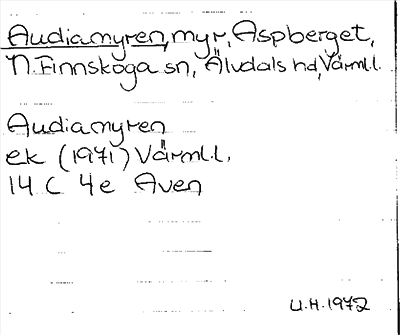 Audiamyren, myr, Aspberget,
N. Finnskoga sn, Älvdals hd, Värml.l.
Audiamyren
ek (1971) Värml.l.
14 C 4e Aven
U.H. 1972